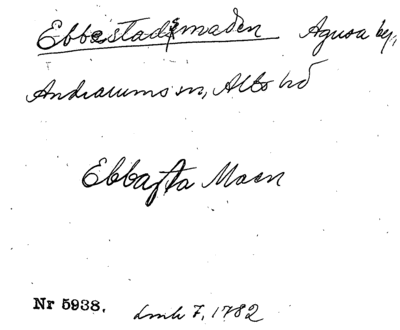 Ebbestadsmaden Agusa by,
Andrarums sn, Albo hd
Ebbasta Maen
Nr 5938. Lmh 7, 1782